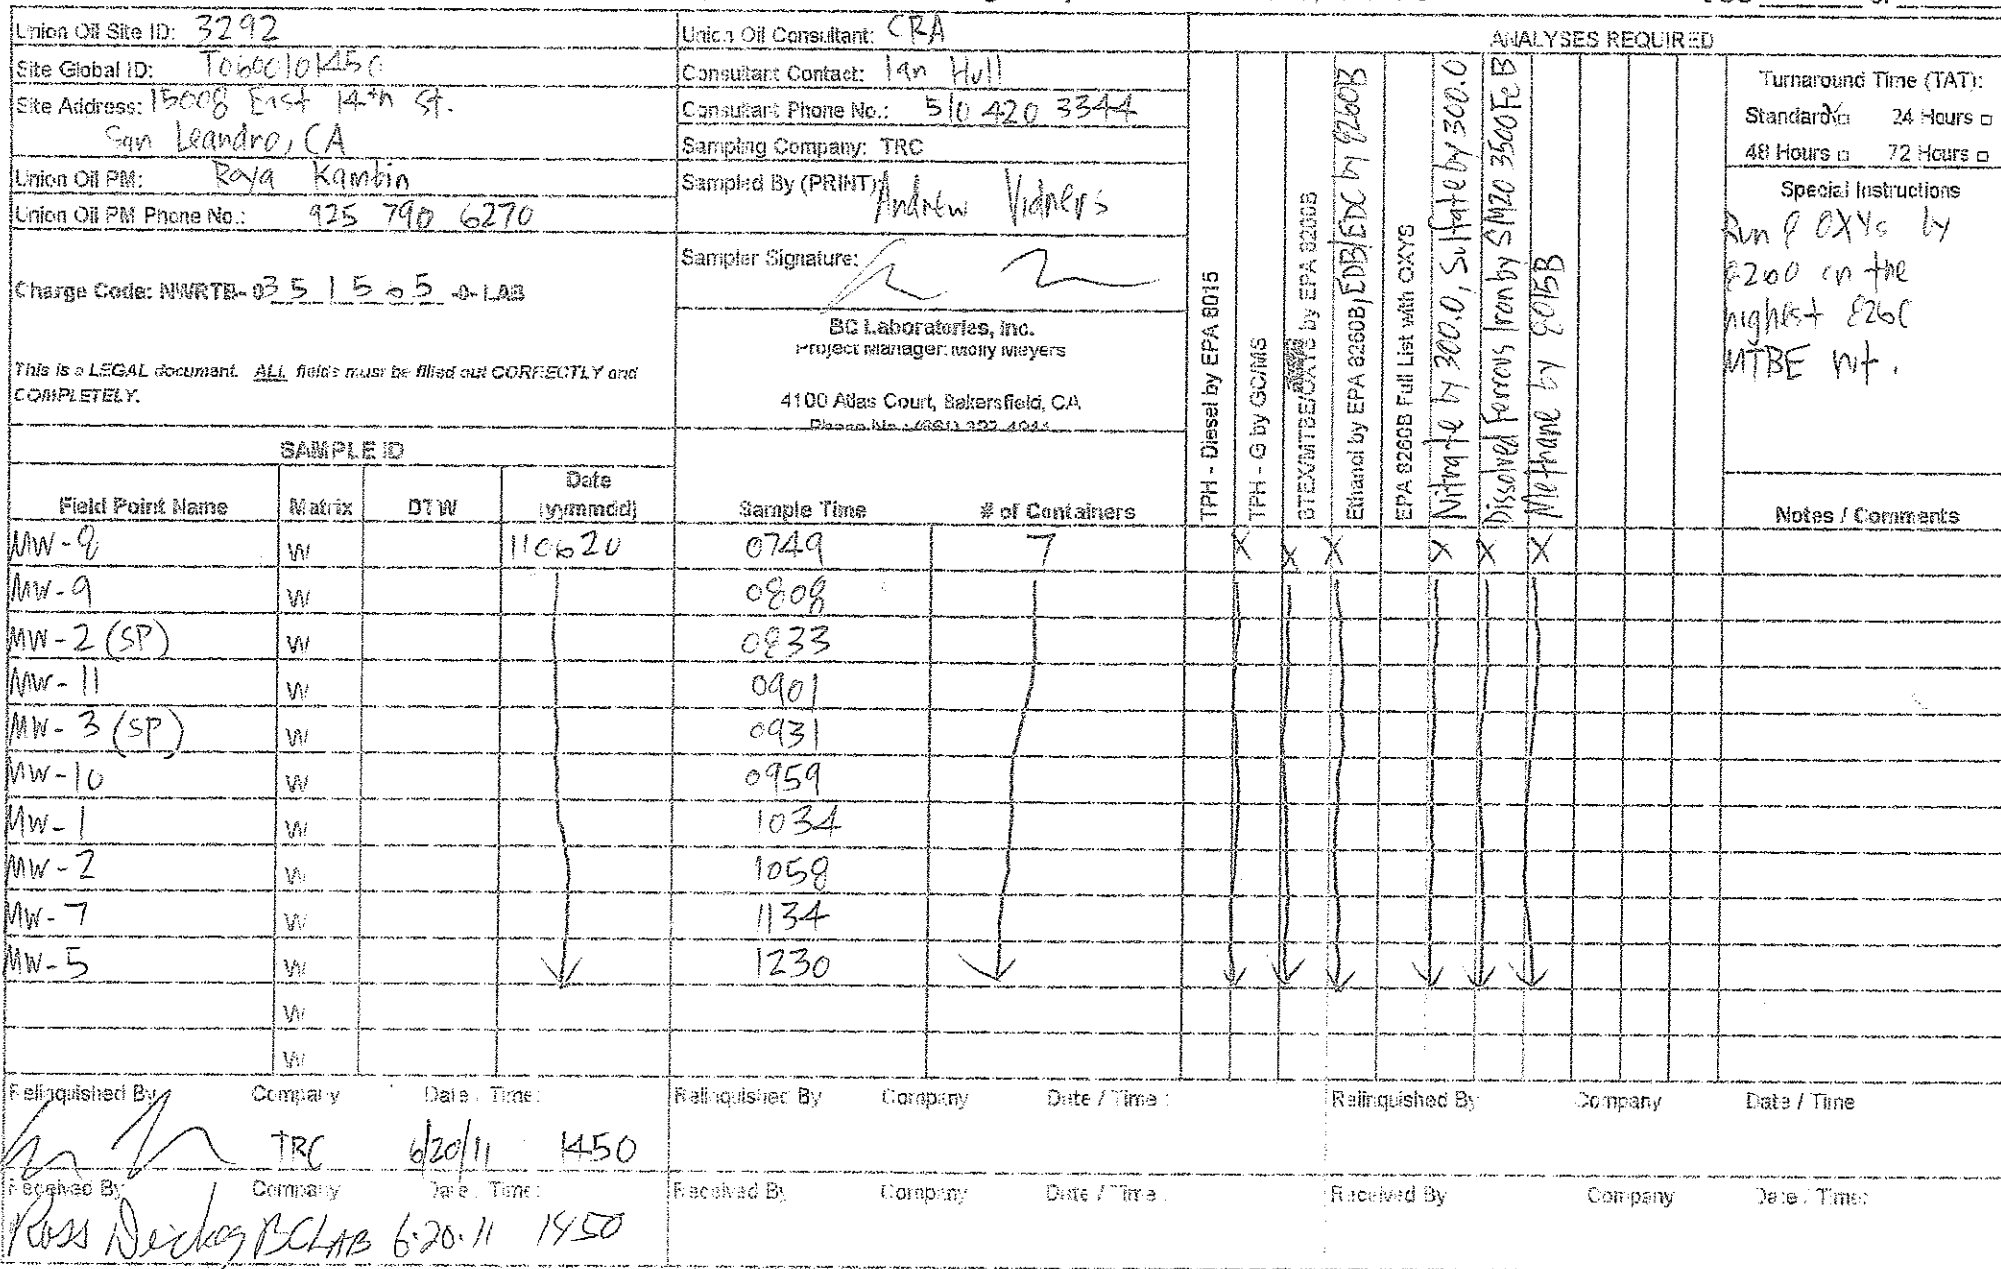 Union Oil Site ID: 3292
Site Global ID: T0600101450
Site Address: 15008 East 14th St.
San Leandro, CA
Union Oil PM: Roya Kambin
Union Oil PM Phone No.: 925 790 6270
Charge Code: NWRTB-0351565-0-LAB
This is a LEGAL document. ALL fields must be filled out CORRECTLY and
COMPLETELY.
Union Oil Consultant: CRA
Consultant Contact: Ian Hull
Consultant Phone No.: 510 420 3344
Sampling Company: TRC
Sampled By (PRINT): Andrew Vidners
Sampler Signature:
BC Laboratories, Inc.
Project Manager: Molly Meyers
4100 Atlas Court, Bakersfield, CA
Phone No.: (661) 327-4911
ANALYSES REQUIRED
TPH - Diesel by EPA 8015
TPH - G by GC/MS
BTEX/MTBE/OXYS by EPA 8260B
Ethanol by EPA 8260B, EDB/EDC by 8260B
EPA 8260B Full List with OXYS
Nitrate by 300.0, Sulfate by 300.0
Dissolved Ferrous Iron by SM20 3500 Fe B
Methane by 8015B
Turnaround Time (TAT):
Standard X 24 Hours □
48 Hours □ 72 Hours □
Special Instructions
Run 8 OXYs by
8260 on the
highest 8260
MTBE hit.
SAMPLE ID
Field Point Name Matrix DTW Date (yymmdd) Sample Time # of Containers Notes / Comments
MW-8 W 110620 0749 7 X X X X X X
MW-9 W 0808
MW-2 (SP) W 0833
MW-11 W 0901
MW-3 (SP) W 0931
MW-10 W 0959
MW-1 W 1034
MW-2 W 1058
MW-7 W 1134
MW-5 W 1230
W
W
Relinquished By Company Date / Time: Relinquished By Company Date / Time: Relinquished By Company Date / Time
TRC 6/20/11 1450
Received By Company Date / Time: Received By Company Date / Time: Received By Company Date / Time:
Ross BCLAB 6.20.11 1450